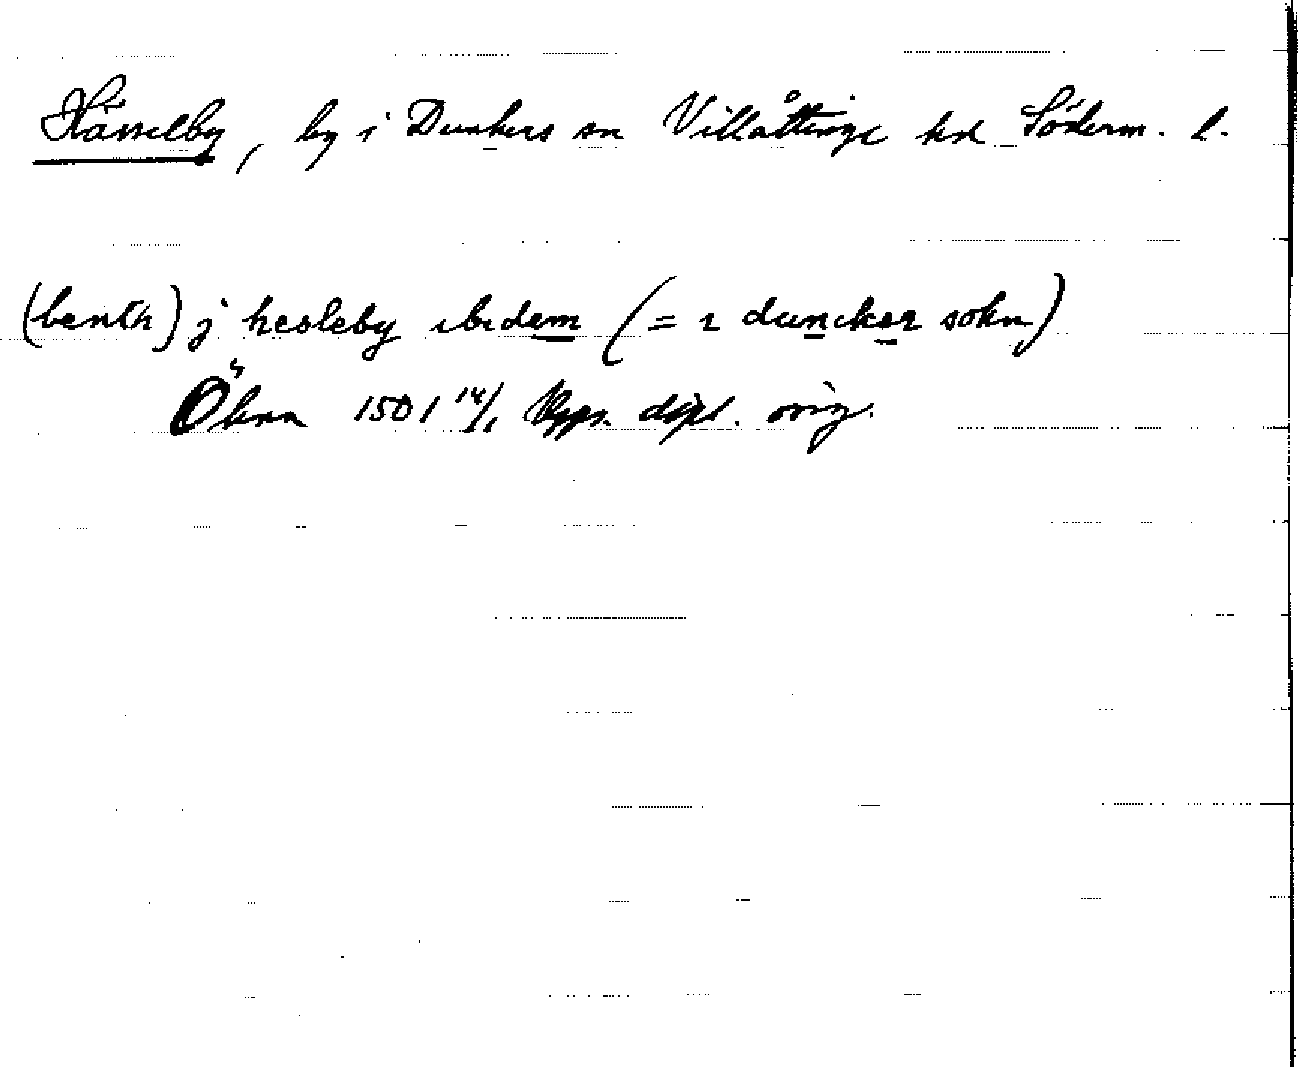 Hässelby, by i Dunkers sn Villåttinge hd Söderm. l.
(benkt) j hesleby ibidem (= i duncker sokn)
Ökna 1501 14/1 Pgpr. dipl. orig.